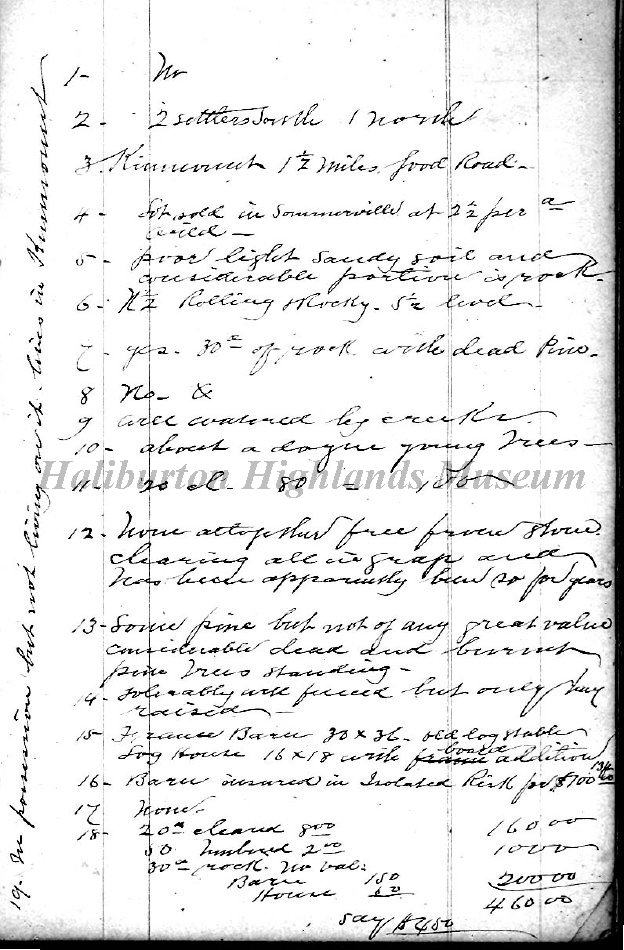 1- No
2- 2 settlers South 1 north
3. Kinmount 1½ Miles. Good Road-
4- Lot sold in Sommerville at 2½ per a
wild-
5- poor light Sandy soil and
considerable portion is rock.
6- N½ Rolling & Rocky. S½ level-
7- yes. 30a of rock with dead Pine-
8 No-
9 well watered by creek
10- about a dozen young trees-
11- 20 cl- 80 = 100
12- None altogether free from stone.
clearing all in grass and
has been apparently been so for years
13- Some pine but not of any great value
considerable dead and burnt
pine trees standing-
14- Tolerably well fenced but only hay
raised-
15- Frame Barn 30 x 36- old log stable
Log House 16 x 18 with frame board addition
16- Barn insured in Isolated Risk for $100
17 None-
18- 20a cleared 8 00 160 00
50 timbered 2 00 100 0
30a rock. No val.
Barn 150
House 50 200 00
460 00
say $450
19- In possession but not living on it. lives in Kinmount
Haliburton Highlands Museum